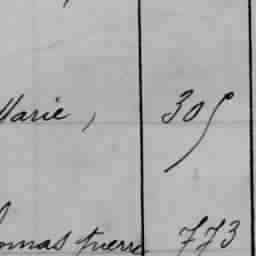 Marie, 305
Thomas pierre 773